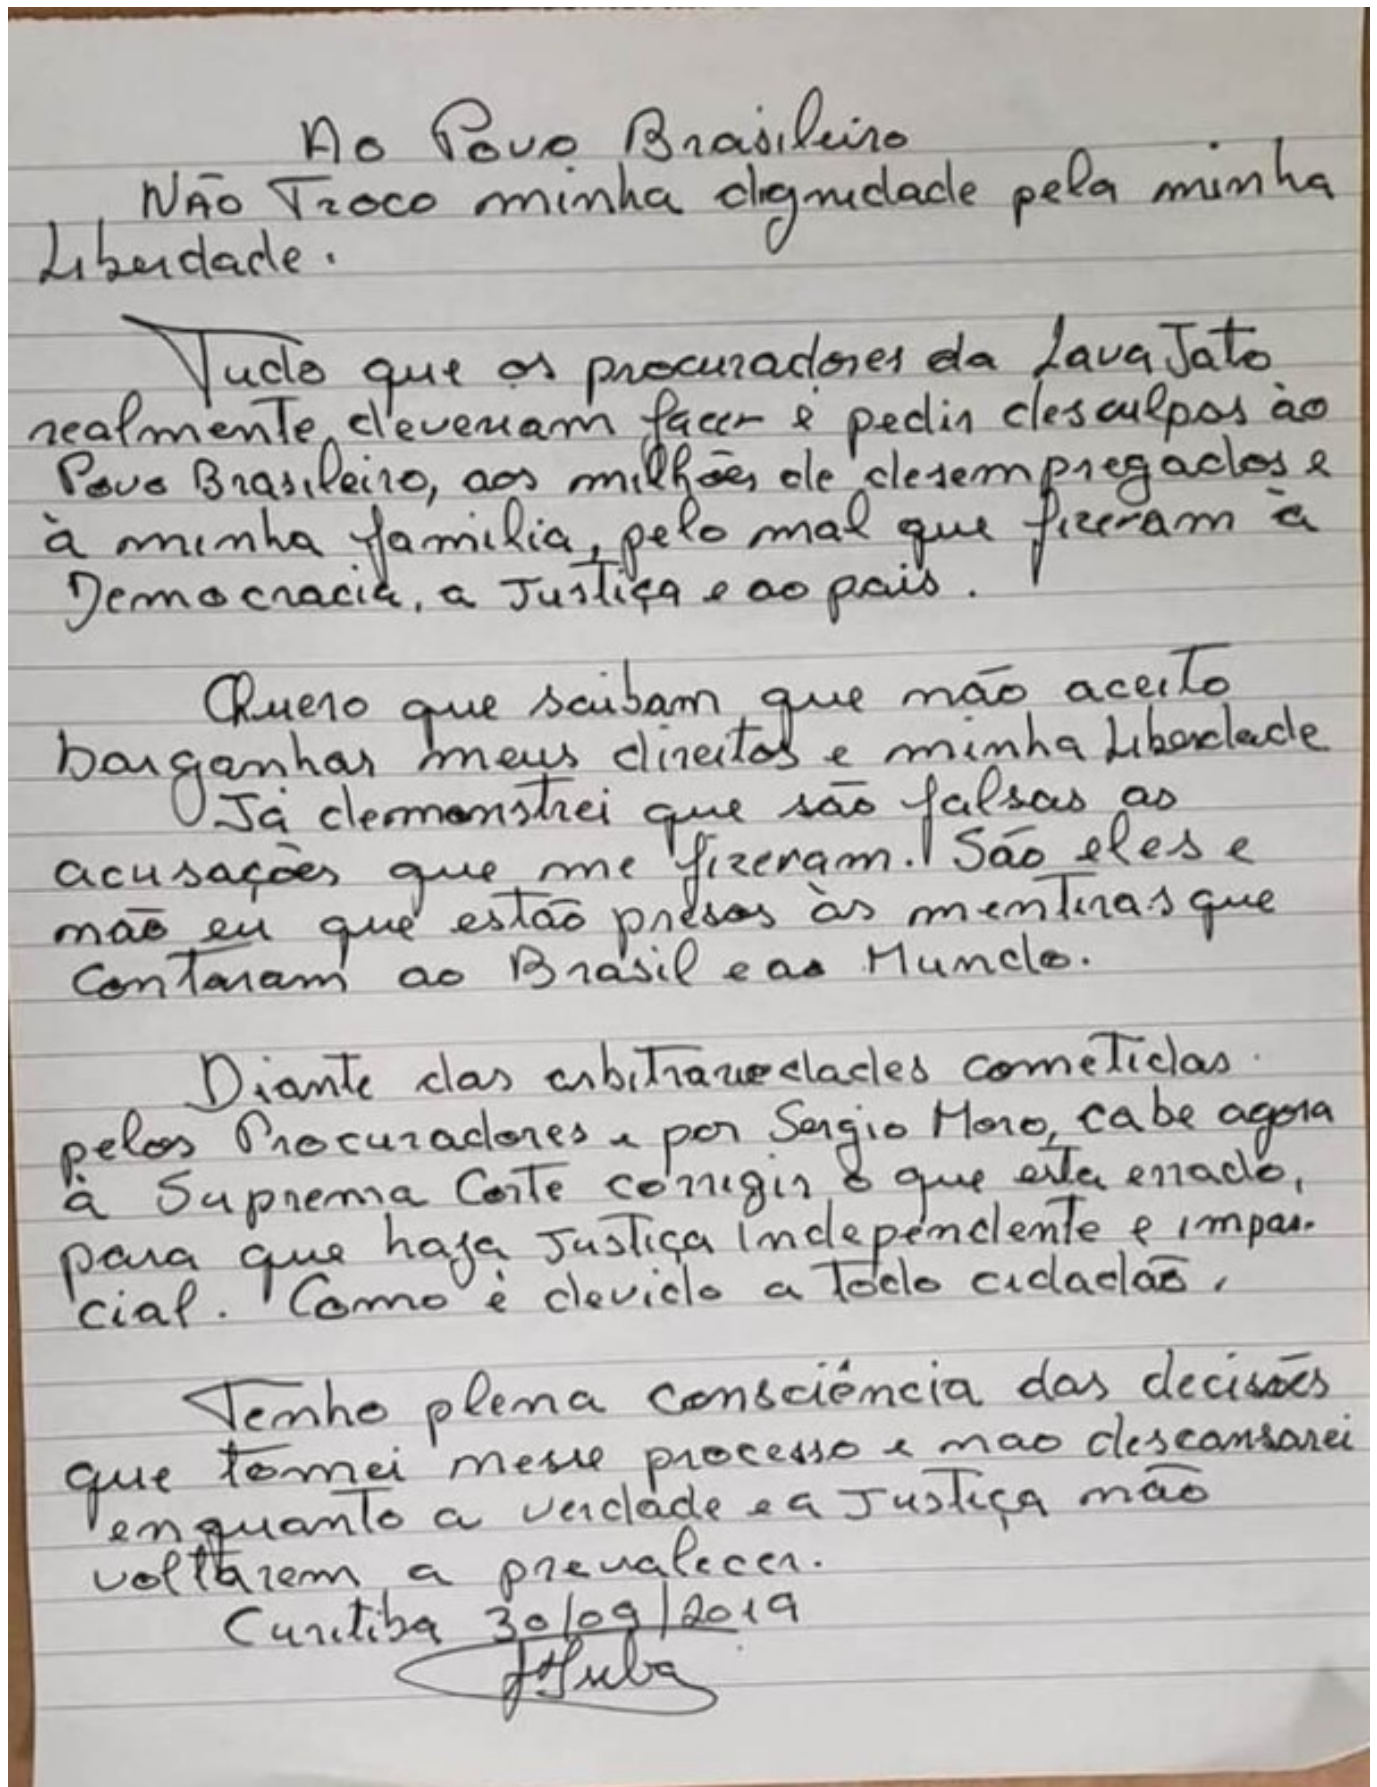 Ao Povo Brasileiro
Não Troco minha dignidade pela minha
Liberdade.
Tudo que os procuradores da Lava Jato
realmente deveriam fazer é pedir desculpas ào
Povo Brasileiro, aos milhões de desempregados e
à minha familia, pelo mal que fizeram à
Democracia, a Justiça e ao pais.
Quero que saibam que não aceito
barganhar meus direitos e minha Liberdade
Já demonstrei que são falsas as
acusações que me fizeram. São eles e
não eu que estão presos às mentiras que
Contaram ao Brasil e ao Mundo.
Diante das arbitrariedades cometidas
pelos Procuradores e por Sergio Moro, cabe agora
à Suprema Corte corrigir o que esta errado,
para que haja Justiça independente e impar-
cial. Como é devido a todo cidadão.
Tenho plena consciência das decisões
que tomei nesse processo e nao descansarei
enquanto a verdade e a Justiça não
voltarem a prevalecer.
Curitiba 30/09/2019
Lula